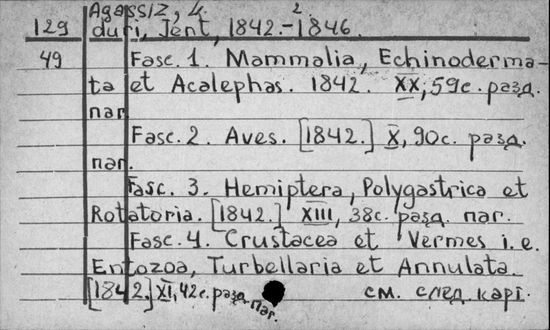 Agassiz, L. 2.
129 duri, Jent, 1842.-1846.
49 Fasc. 1. Mammalia, Echinoderma-
ta et Acalephas. 1842. XX, 59с. разд.
паг.
Fasc. 2. Aves. [1842.] X, 90с. разд.
паг.
Fasc. 3. Hemiptera, Polygastrica et
Rotatoria. [1842.] XIII, 38с. разд. паг.
Fasc. 4. Crustacea et Vermes i.e.
Entozoa, Turbellaria et Annulata.
[1842.] XI, 42с. разд. паг. см. след. карт.